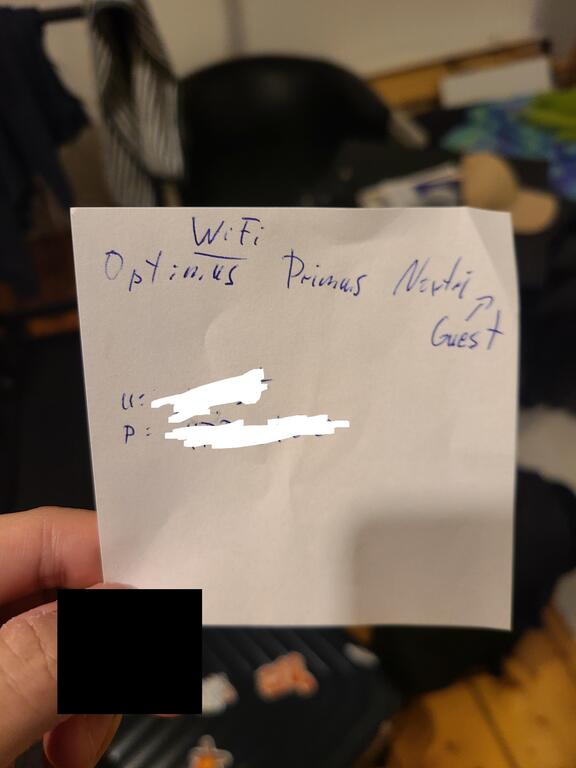 WiFi
Optimus Primus
Guest
u:
p: